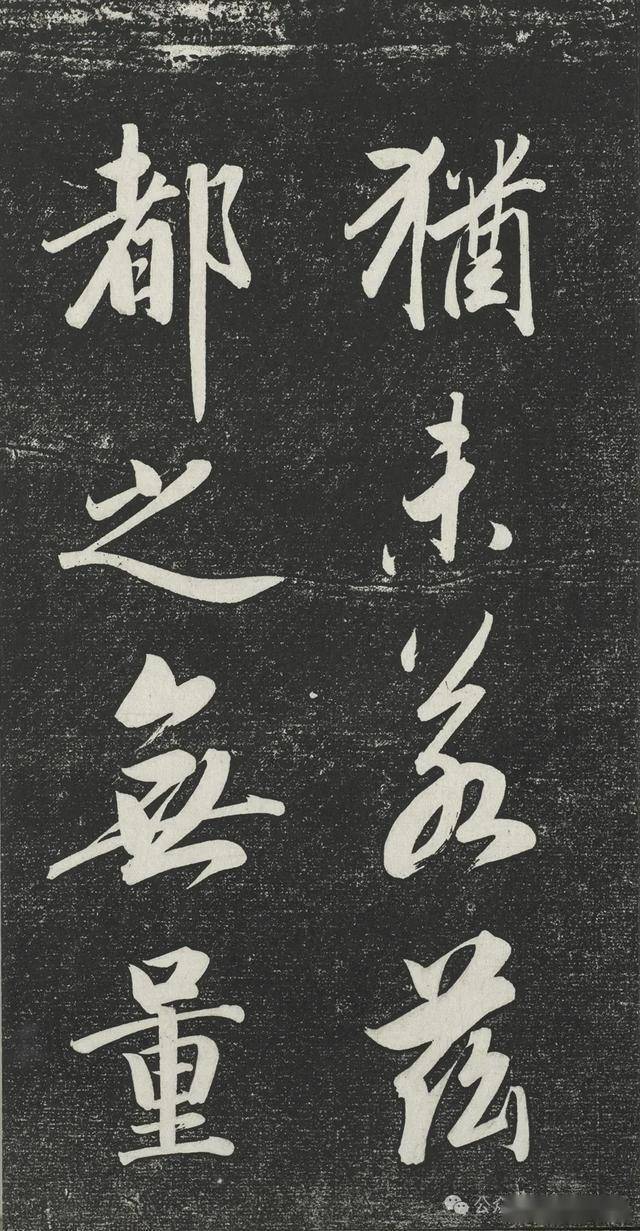 猶未若茲
都之無量
公众